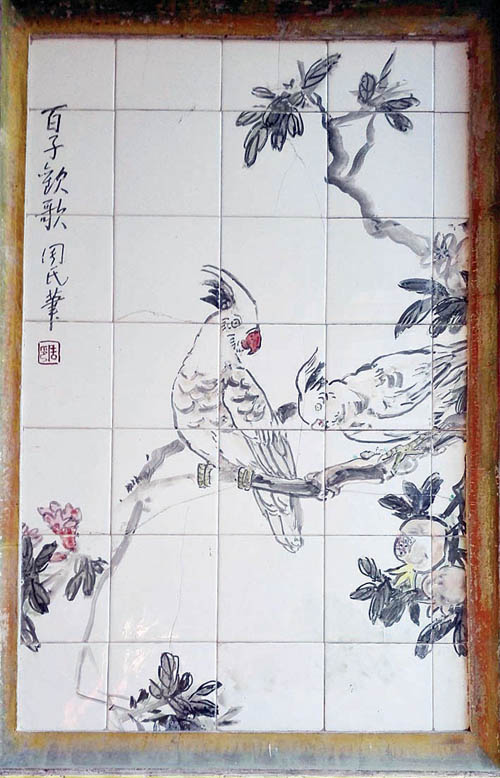 百子歡歌 周氏筆